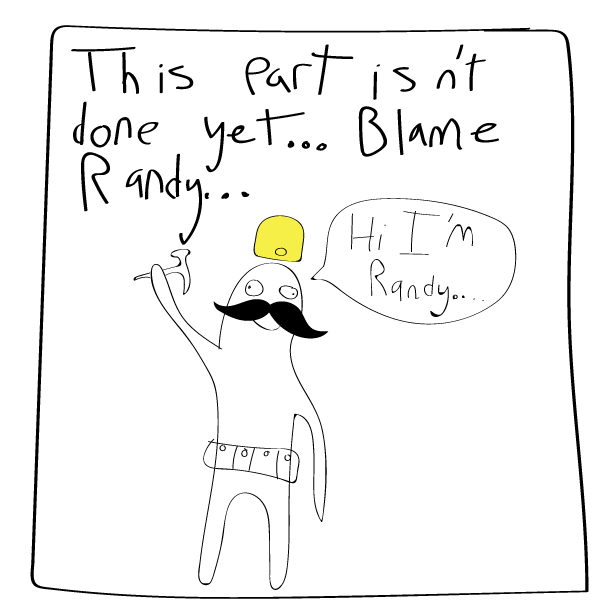 This part isn't
done yet... Blame
Randy...
Hi I'm
Randy....